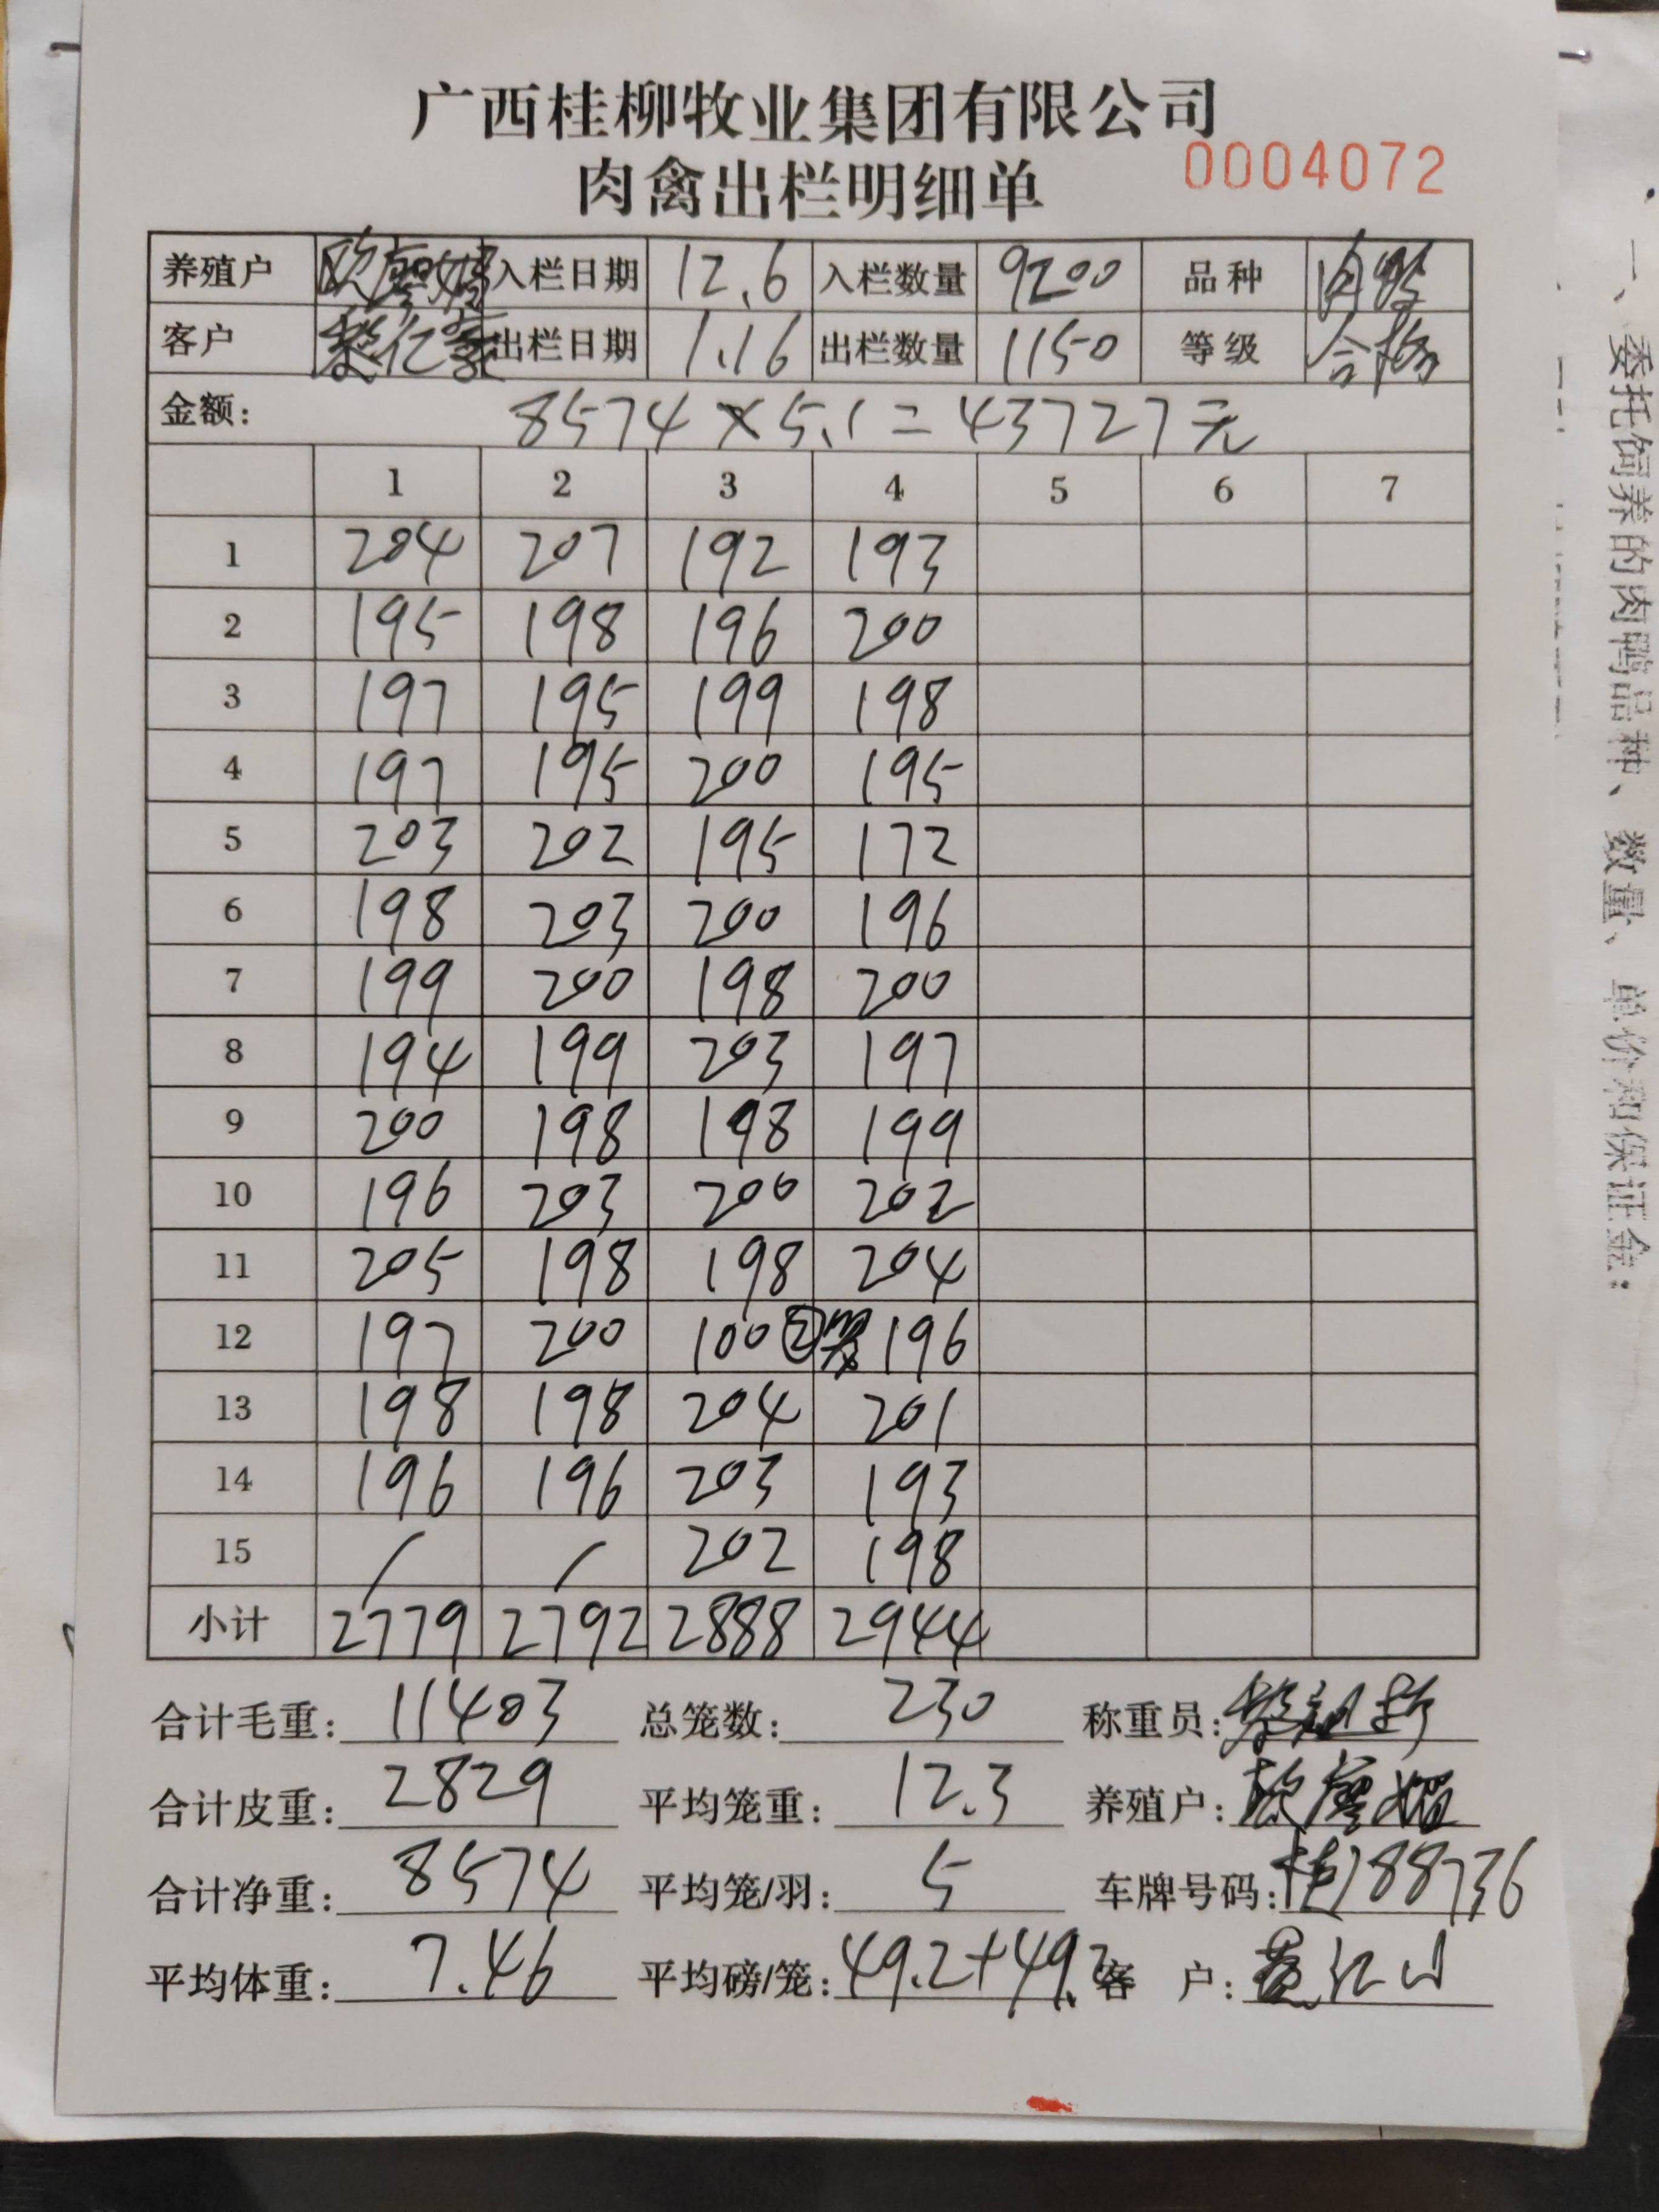 广西桂柳牧业集团有限公司
肉禽出栏明细单 0004072
养殖户 入栏日期 12.6 入栏数量 9200 品种 肉鸭
客户 出栏日期 1.16 出栏数量 1150 等级 合格
金额: 8574×5.1=43727元
1 2 3 4 5 6 7
1 204 207 192 193
2 195 198 196 200
3 197 195 199 198
4 197 195 200 195
5 203 202 195 172
6 198 203 200 196
7 199 200 198 200
8 194 199 203 197
9 200 198 198 199
10 196 203 200 202
11 205 198 198 204
12 197 200 100②笼 196
13 198 198 204 201
14 196 196 203 193
15 / / 202 198
小计 2779 2792 2888 2944
合计毛重: 11403 总笼数: 230 称重员:
合计皮重: 2829 平均笼重: 12.3 养殖户:
合计净重: 8574 平均笼/羽: 5 车牌号码: 桂J88736
平均体重: 7.46 平均磅/笼: 49.2+49.2 客 户:
一、委托饲养的肉鸭品种、数量、单价和保证金: